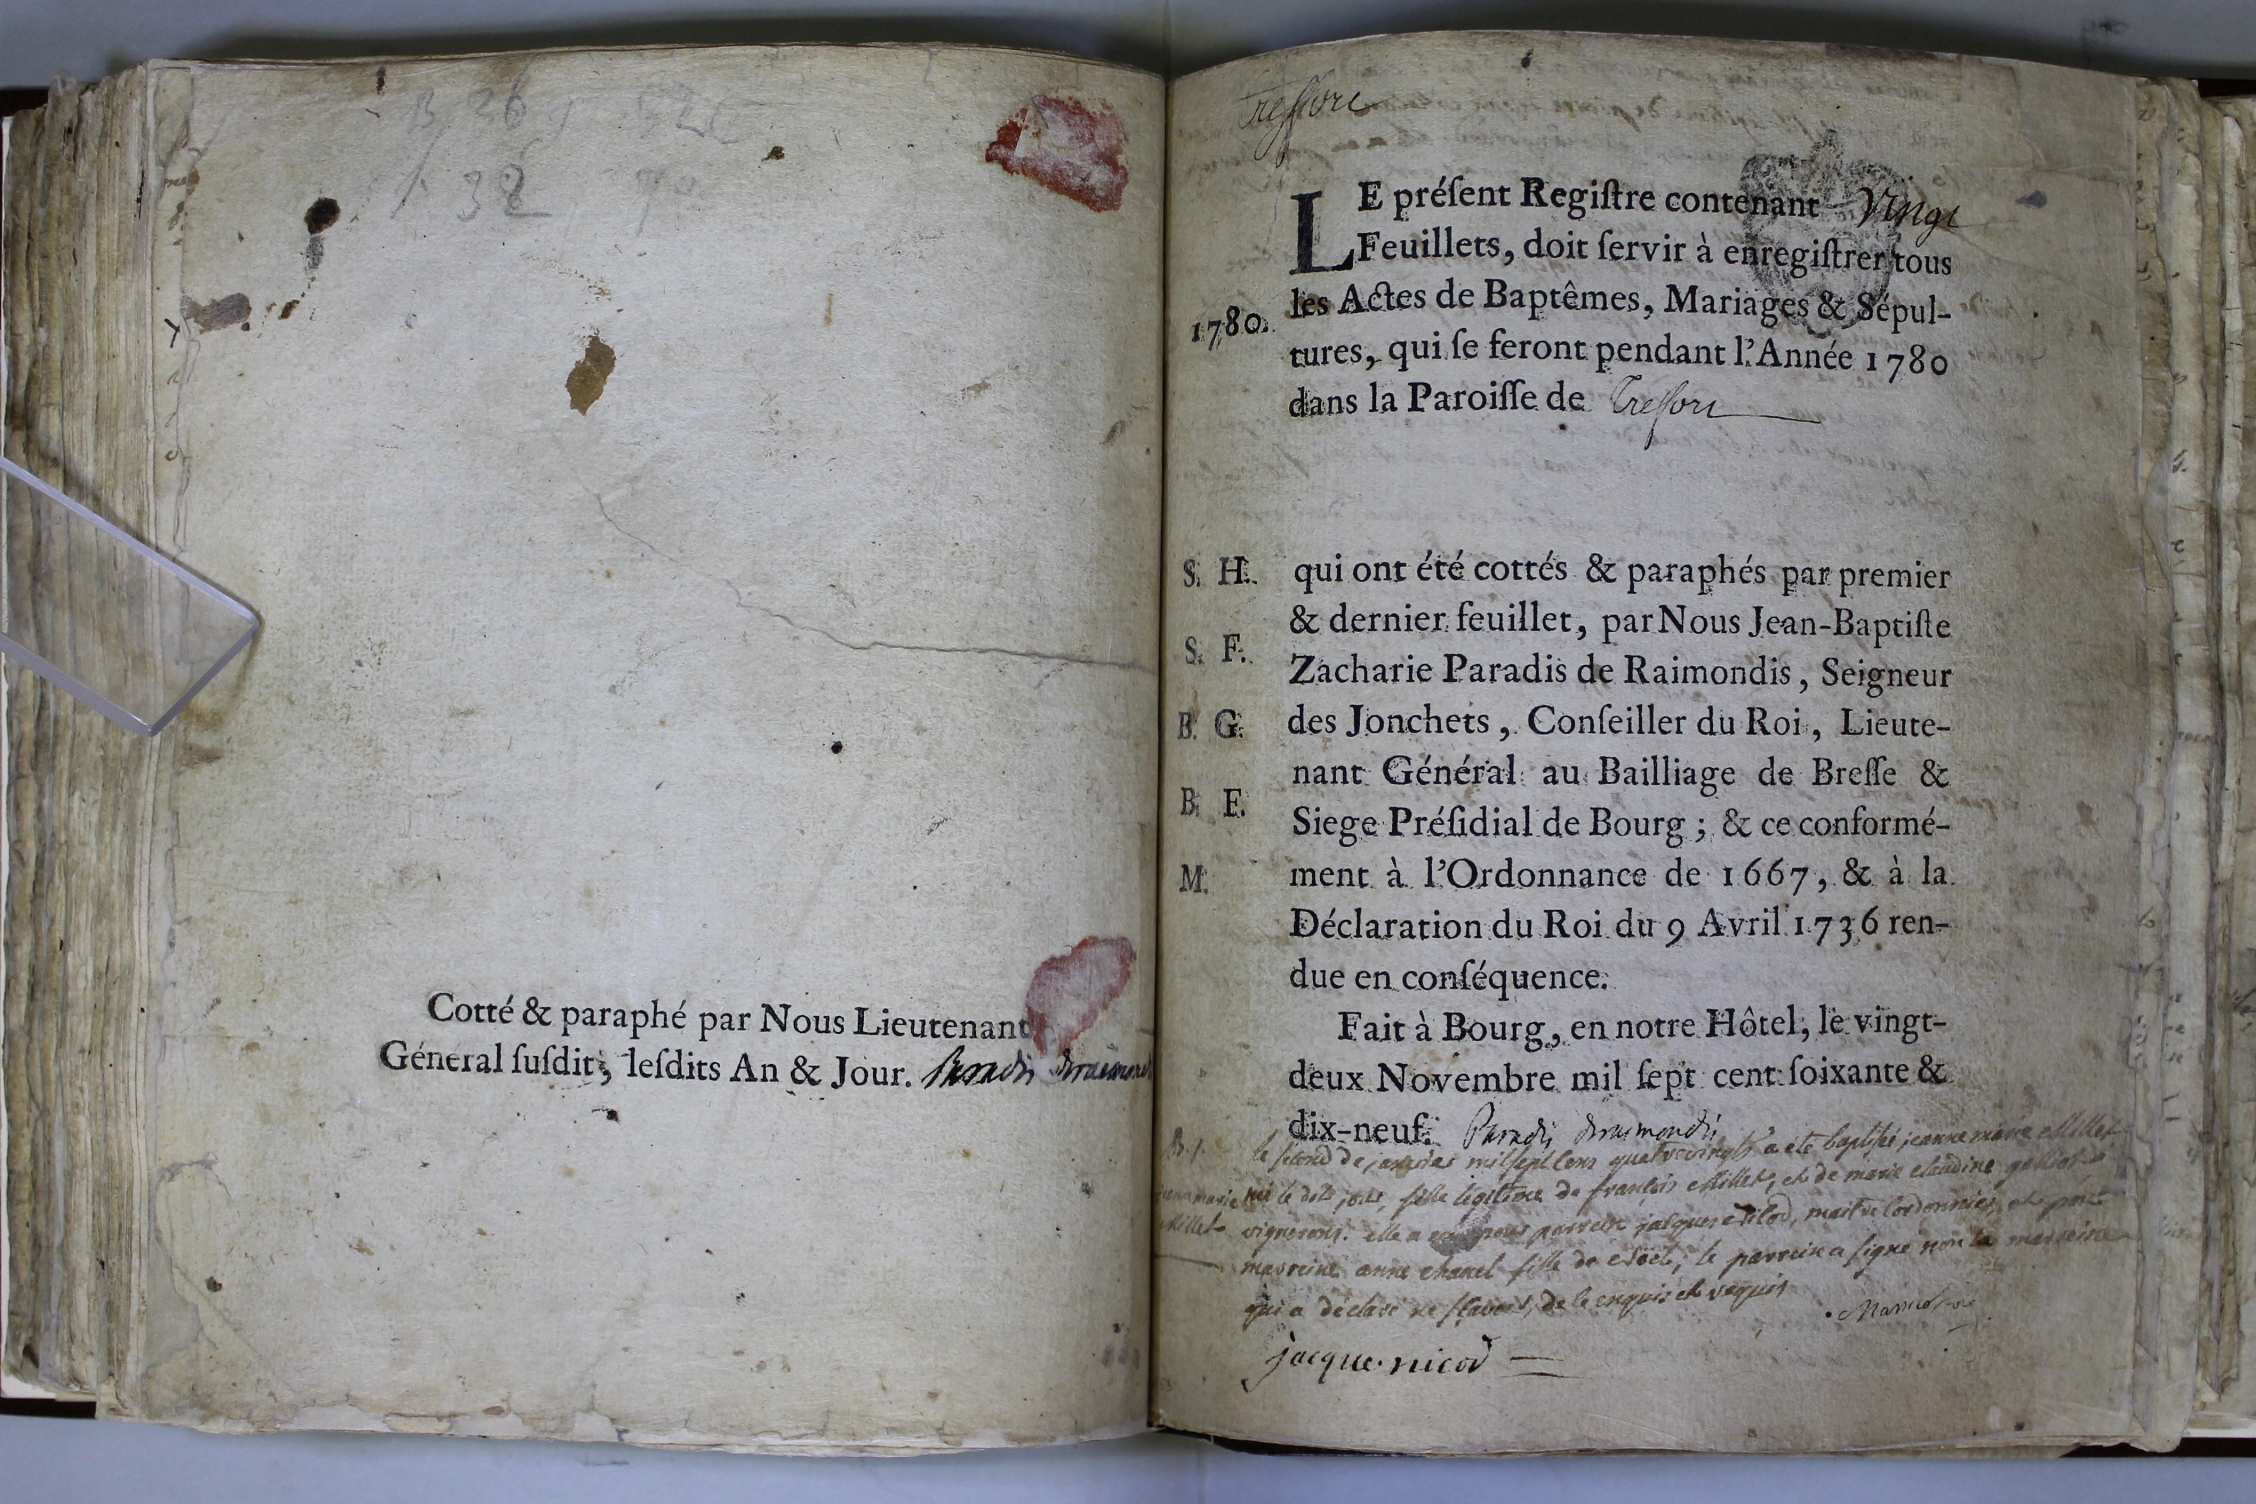 Cotté & paraphé par Nous Lieutenant
Géneral ſuſdit, leſdits An & Jour. Paradis
Treſſort
LE préſent Regiſtre contenant Vingt
Feuillets, doit ſervir à enregiſtrer tous
les Actes de Baptêmes, Mariages & Sépul-
1780.
tures, qui ſe feront pendant l'Année 1780
dans la Paroiſſe de Treſſort
S. H. qui ont été cottés & paraphés par premier
& dernier feuillet, par Nous Jean-Baptiſte
S. F.
Zacharie Paradis de Raimondis, Seigneur
B. G. des Jonchets, Conſeiller du Roi, Lieute-
nant Général au Bailliage de Breſſe &
B. F.
Siege Préſidial de Bourg ; & ce conformé-
M. ment à l'Ordonnance de 1667, & à la
Déclaration du Roi du 9 Avril 1736 ren-
due en conſéquence.
Fait à Bourg, en notre Hôtel, le vingt-
deux Novembre mil ſept cent ſoixante &
dix-neuf. Paradis Deraimondis
B. 1. le ſecond de janvier mil ſept cens quatrevingts a été baptiſé jeanne marie Millet
marie né le dit jour, fille légitime de françois Millet, et de marie claudine
Millet vignerons. elle a eu pour parrein jacques Nicod, maitre cordonnier, et pour
marreine anne chanel fille de ; le parrein a ſigné non la marreine
qui a déclaré ne ſçavoir, de ce enquis et requis
jacque nicod